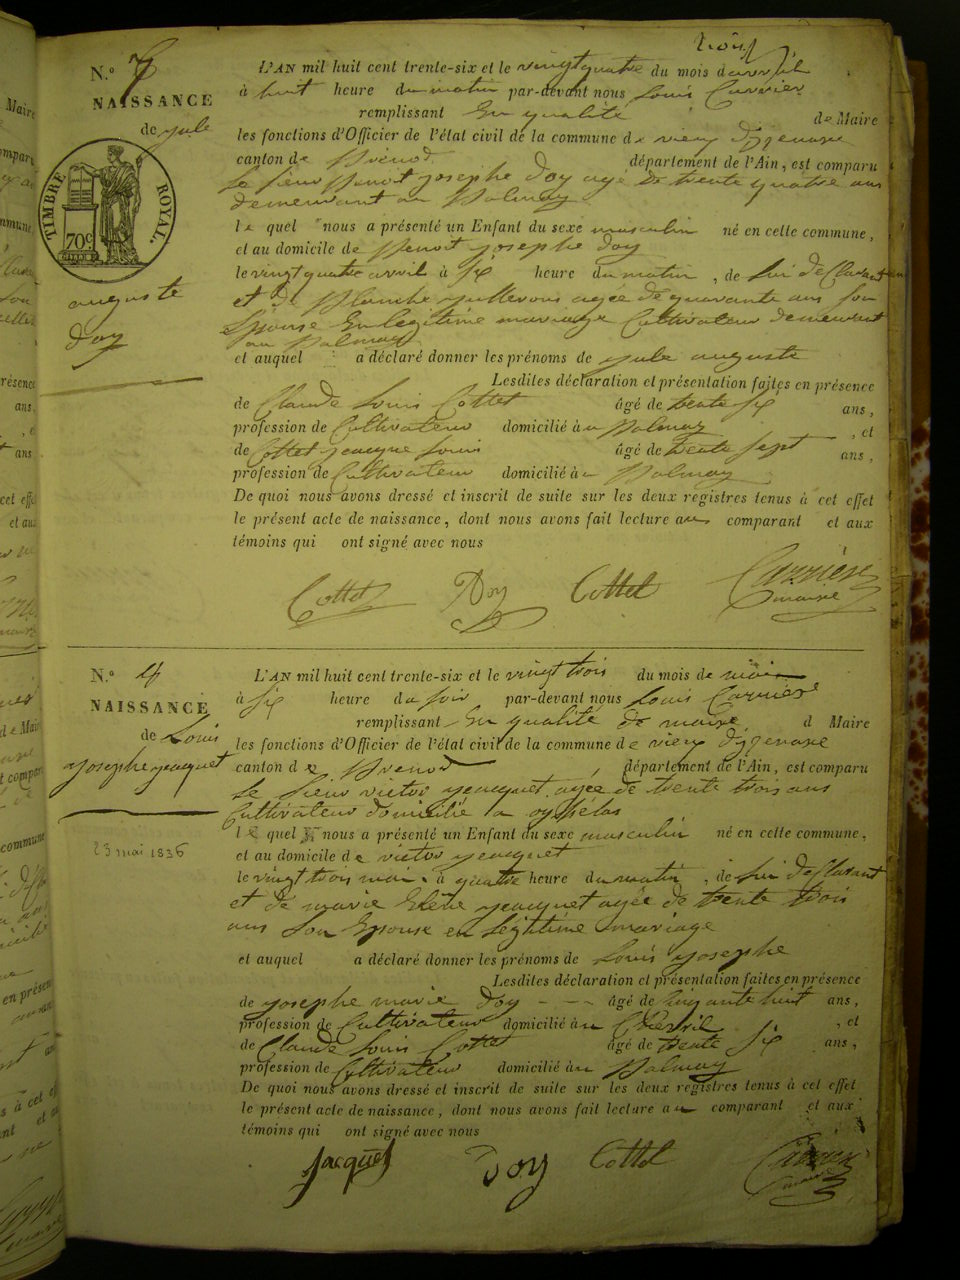 trois
N.º 3
NAISSANCE
de jule
auguste
doy
TIMBRE ROYAL.
70c
L'AN mil huit cent trente-six et le vingtquatre du mois d'avril
à huit heure du matin par-devant nous Louis Carrier
remplissant En qualité de Maire
les fonctions d'Officier de l'état civil de la commune de vieu dizenave
canton de Brénod département de l'Ain, est comparu
le sieur Benoit josephe Doy agé de trente quatre ans
demeurant au Balmay
le quel nous a présenté un Enfant du sexe masculin né en cette commune,
et au domicile de Benoit josephe doy
le vingt quatre avril à six heure du matin, de lui déclarant
et de Blanche agée de quarante ans son
Epouse En légitime mariage Cultivateur demeurant
au Balmay
et auquel a déclaré donner les prénoms de jule auguste
Lesdites déclaration et présentation faites en présence
de Claude Louis Cottet âgé de trente six ans,
profession de Cultivateur domicilié au Balmay, et
de Cottet jacque Louis âgé de trente sept ans,
profession de Cultivateur domicilié au Balmay
De quoi nous avons dressé et inscrit de suite sur les deux registres tenus à cet effet
le présent acte de naissance, dont nous avons fait lecture au comparant et aux
témoins qui ont signé avec nous
Cottet Doy Cottet Carrier
maire
N.º 4
NAISSANCE
de Louis
josephe jacquet
23 mai 1836
L'AN mil huit cent trente-six et le vingt trois du mois de mai
à six heure du soir par-devant nous Louis Carrier
remplissant En qualité de maire d Maire
les fonctions d'Officier de l'état civil de la commune de vieu dizenave
canton de Brenod département de l'Ain, est comparu
le sieur victor jacquet, agée de trente trois ans
Cultivateur domicilié a oysselas
le quel nous a présenté un Enfant du sexe masculin né en cette commune,
et au domicile de victor jacquet
le vingt trois mai à quatre heure du matin, de lui déclarant
et de marie Elène jacquet agée de trente trois
ans son Epouse en légitime mariage
et auquel a déclaré donner les prénoms de Louis josephe
Lesdites déclaration et présentation faites en présence
de josephe marie Doy âgé de huit ans,
profession de Cultivateur domicilié au, et
de Claude Louis Cottet âgé de trente six ans,
profession de Cultivateur domicilié au Balmay
De quoi nous avons dressé et inscrit de suite sur les deux registres tenus à cet effet
le présent acte de naissance, dont nous avons fait lecture au comparant et aux
témoins qui ont signé avec nous
Jacquet Doy Cottet Carrier
maire